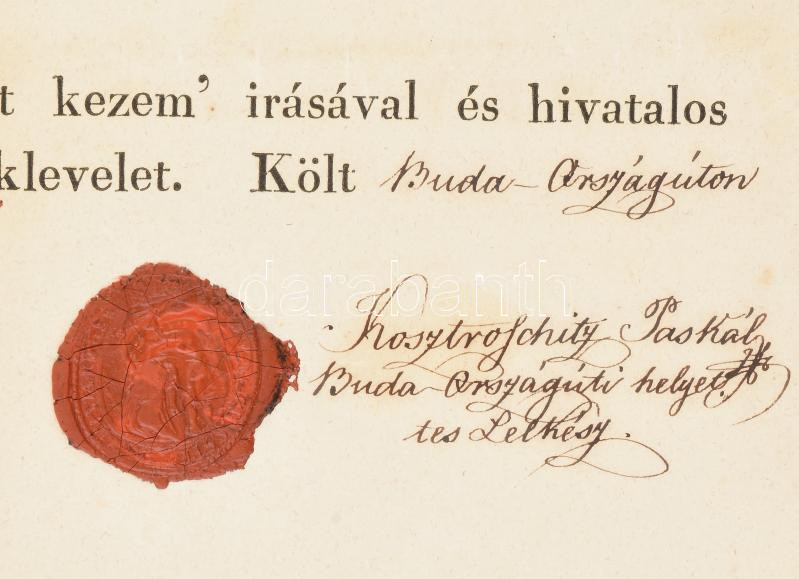 t kezem' irásával és hivatalos
klevelet. Költ Buda-Országúton
darabanth
Kosztroschitz Paskál
Buda-Országúti helyet
tes Lelkész.